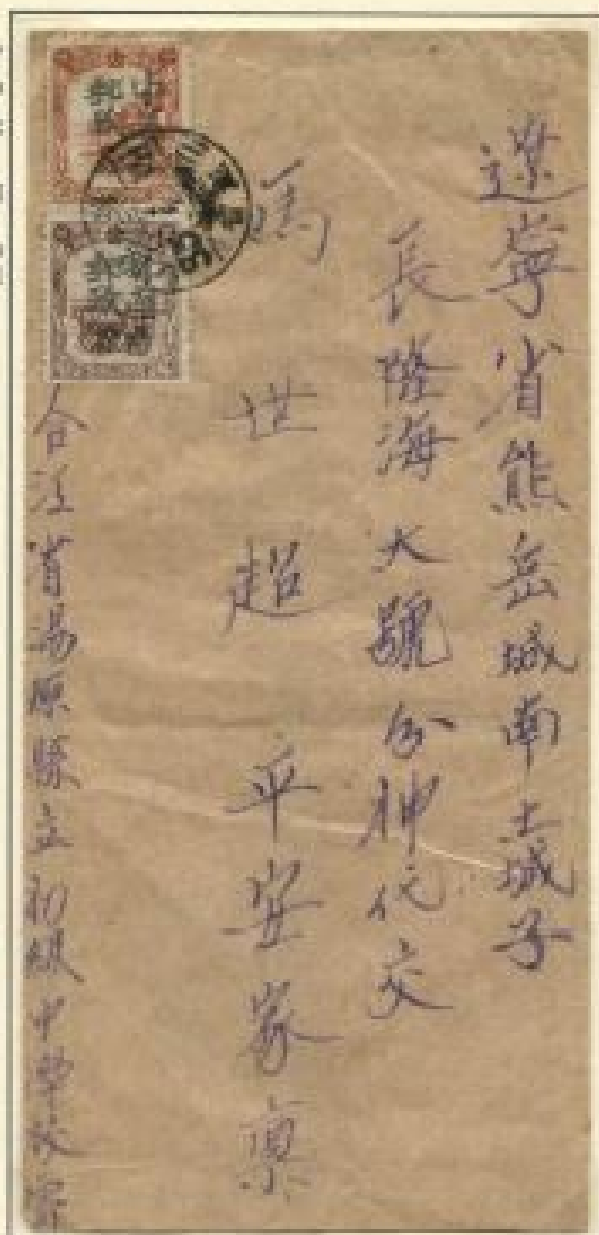 遼寧省熊岳城南土城子
長隆海大號台神代交
馬世超 平安家稟
合江省湯原縣立初級中學校